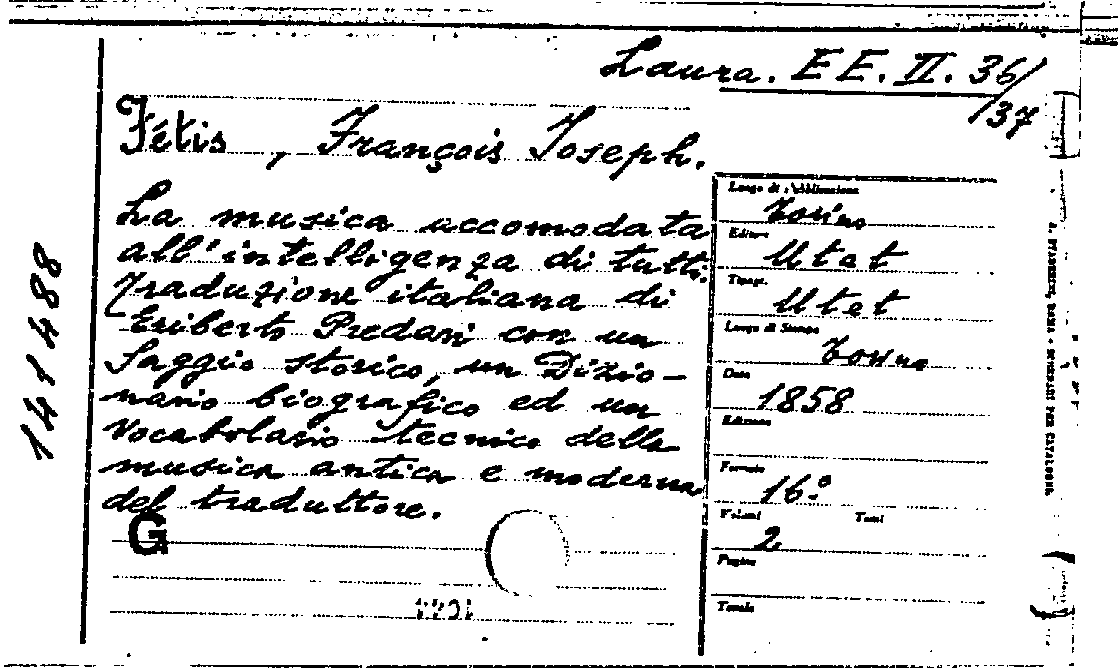 Laura. EE. II. 36/
/37
Fétis, François Joseph.
La musica accomodata
all'intelligenza di tutti.
Traduzione italiana di
Eriberto Predari con un
Saggio storico, un Dizio-
nario biografico ed un
Vocabolario tecnico della
musica antica e moderna
del traduttore.
G
141488
Luogo di Pubblicazione
Torino
Editore
Utet
Tipogr.
Utet
Luogo di Stampa
Torino
Data
1858
Edizione
Formato
16.º
Volumi Tomi
2
Pagine
Tavole